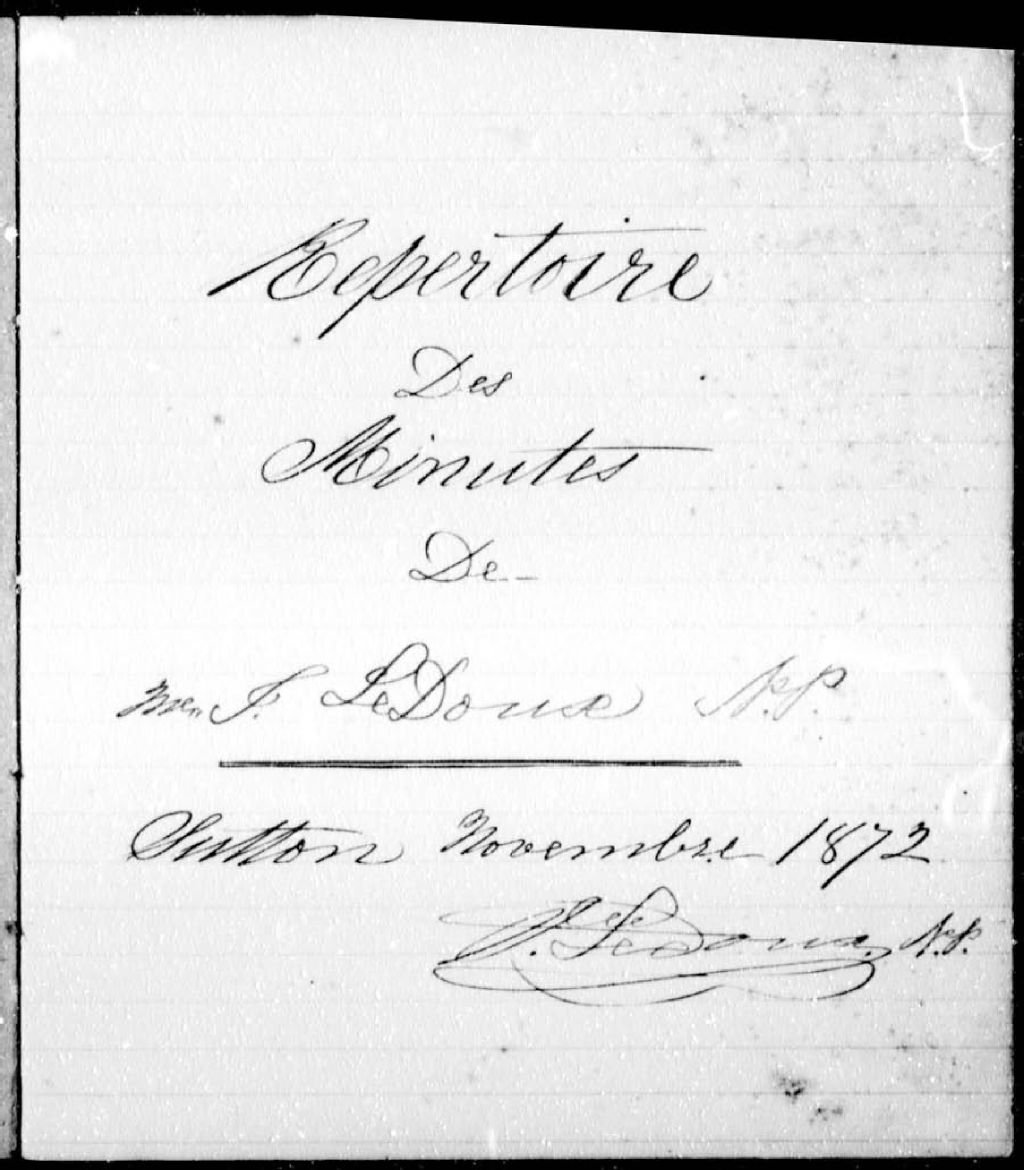 Repertoire
Des
Minutes
De
Mtre F. LeDoux N.P.
Sutton Novembre 1872
F. LeDoux N.P.